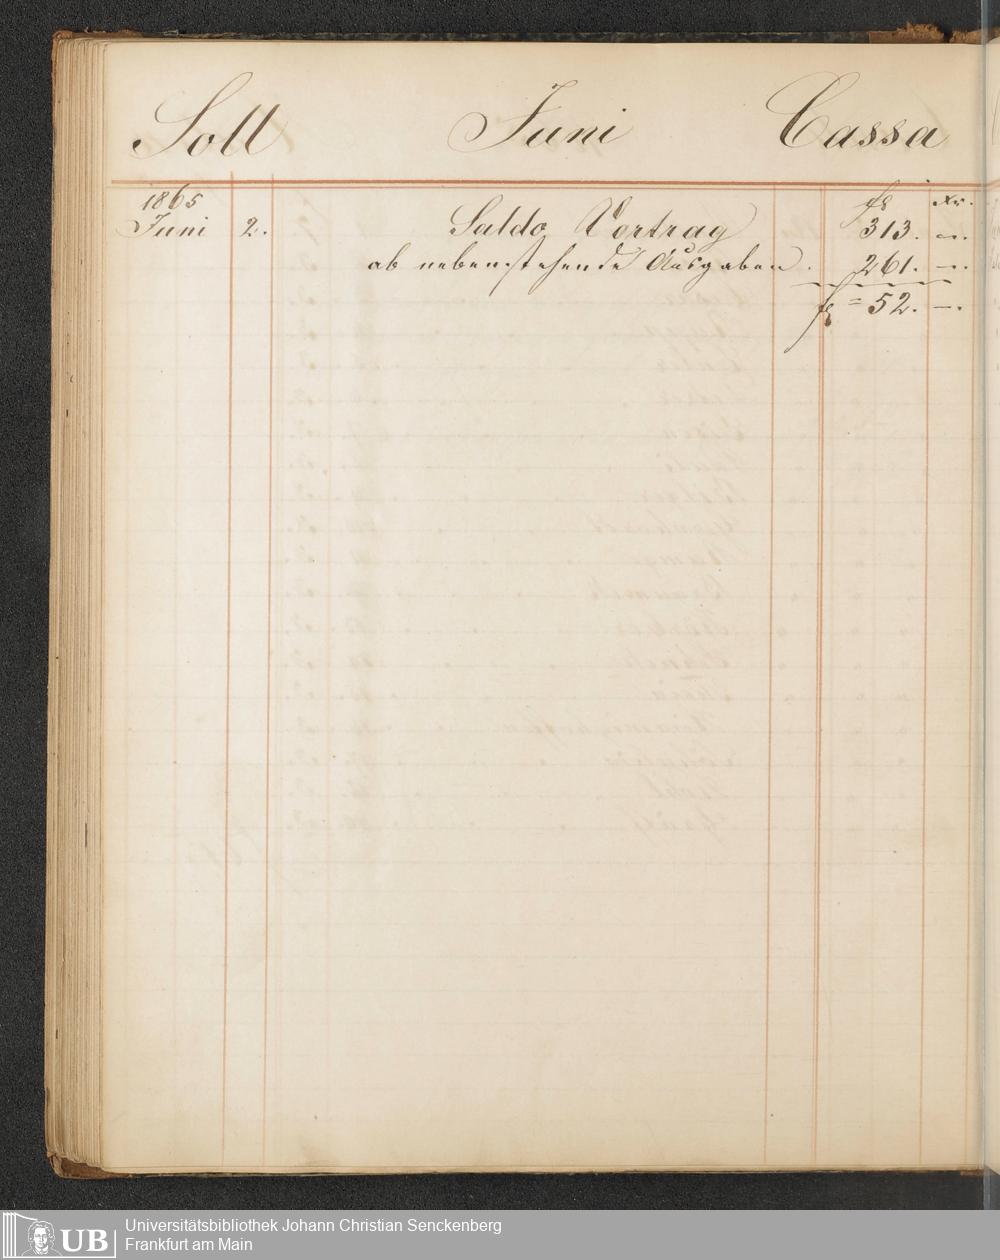 Soll Juni Cassa
1865 fl Xr.
Juni 2. Saldo Vortrag 313. —.
ab nebenstehende Ausgaben. 261. —.
fl = 52. —.
UB
Universitätsbibliothek Johann Christian Senckenberg
Frankfurt am Main